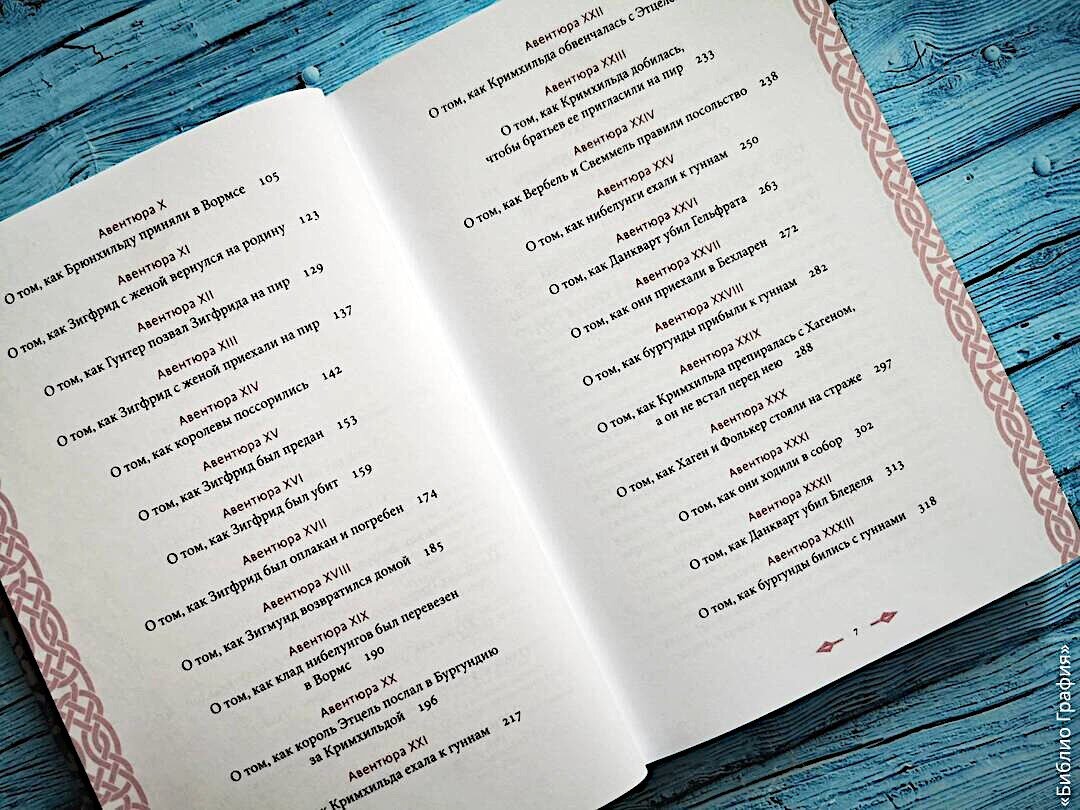 Авентюра X
О том, как Брюнхильду приняли в Вормсе 105
Авентюра XI
О том, как Зигфрид с женой вернулся на родину 123
Авентюра XII
О том, как Гунтер позвал Зигфрида на пир 129
Авентюра XIII
О том, как Зигфрид с женой приехали на пир 137
Авентюра XIV
О том, как королевы поссорились 142
Авентюра XV
О том, как Зигфрид был предан 153
Авентюра XVI
О том, как Зигфрид был убит 159
Авентюра XVII
О том, как Зигфрид был оплакан и погребен 174
Авентюра XVIII
О том, как Зигмунд возвратился домой 185
Авентюра XIX
О том, как клад нибелунгов был перевезен
в Вормс 190
Авентюра XX
О том, как король Этцель послал в Бургундию
за Кримхильдой 196
Авентюра XXI
Кримхильда ехала к гуннам 217
Авентюра XXII
О том, как Кримхильда обвенчалась с Этцеле
Авентюра XXIII
О том, как Кримхильда добилась,
чтобы братьев ее пригласили на пир 233
Авентюра XXIV
О том, как Вербель и Свеммель правили посольство 238
Авентюра XXV
О том, как нибелунги ехали к гуннам 250
Авентюра XXVI
О том, как Данкварт убил Гельфрата 263
Авентюра XXVII
О том, как они приехали в Бехларен 272
Авентюра XXVIII
О том, как бургунды прибыли к гуннам 282
Авентюра XXIX
О том, как Кримхильда препиралась с Хагеном,
а он не встал перед нею 288
Авентюра XXX
О том, как Хаген и Фолькер стояли на страже 297
Авентюра XXXI
О том, как они ходили в собор 302
Авентюра XXXII
О том, как Данкварт убил Бледеля 313
Авентюра XXXIII
О том, как бургунды бились с гуннами 318
7
«Библио Графия»